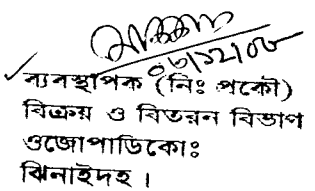 ০৮/১২/০৮
ব্যবস্থাপক (নিঃ পকৌ)
বিক্রয় ও বিতরন বিভাগ
ওজোপাডিকোঃ
ঝিনাইদহ ।